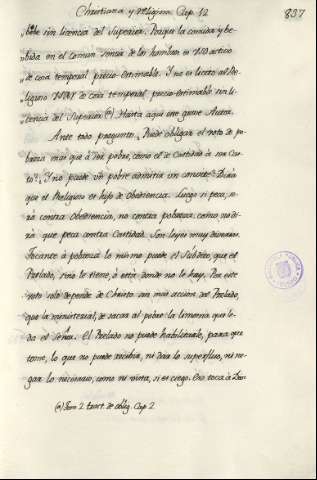 Christiana y Religiosa Cap. 12 837
bebe sin licencia del Superior. Porque la comida y be-
bida en el comun sencia de los hombres es uso activo
de cosa temporal precio estimable. Y no es licito al Re-
ligioso usar de cosa temporal precio estimable sin li-
cencia del Superior (*) Hasta aqui un grave Autor.
Ante todo pregunto: Puede obligar el voto de po-
breza mas que à ser pobre, como el de Castidad à ser Cas-
to? Y no puede un pobre admitir un convite? Dirà
que el Religioso es hijo de obediencia. Luego si peca, se-
rà contra Obediencia, no contra pobreza; como no di-
rà que peca contra Castidad. Son leyes muy diversas.
Tocante à pobreza lo mismo puede el Subdito, que el
Prelado, si no le tiene, ò està donde no le hay. Por este
voto solo depende de Christo sin mas accion del Prelado,
que la ministerial, de sacar al pobre la limosna que le
da el Señor. El Prelado no puede habilitarle, para que
tome, lo que no puede recibir, ni dar lo superfluo, ni ne-
gar lo necesario, como ni vista, si es ciego. Eso toca à
(*) Tom. 2. tract. de oblig. Cap. 2